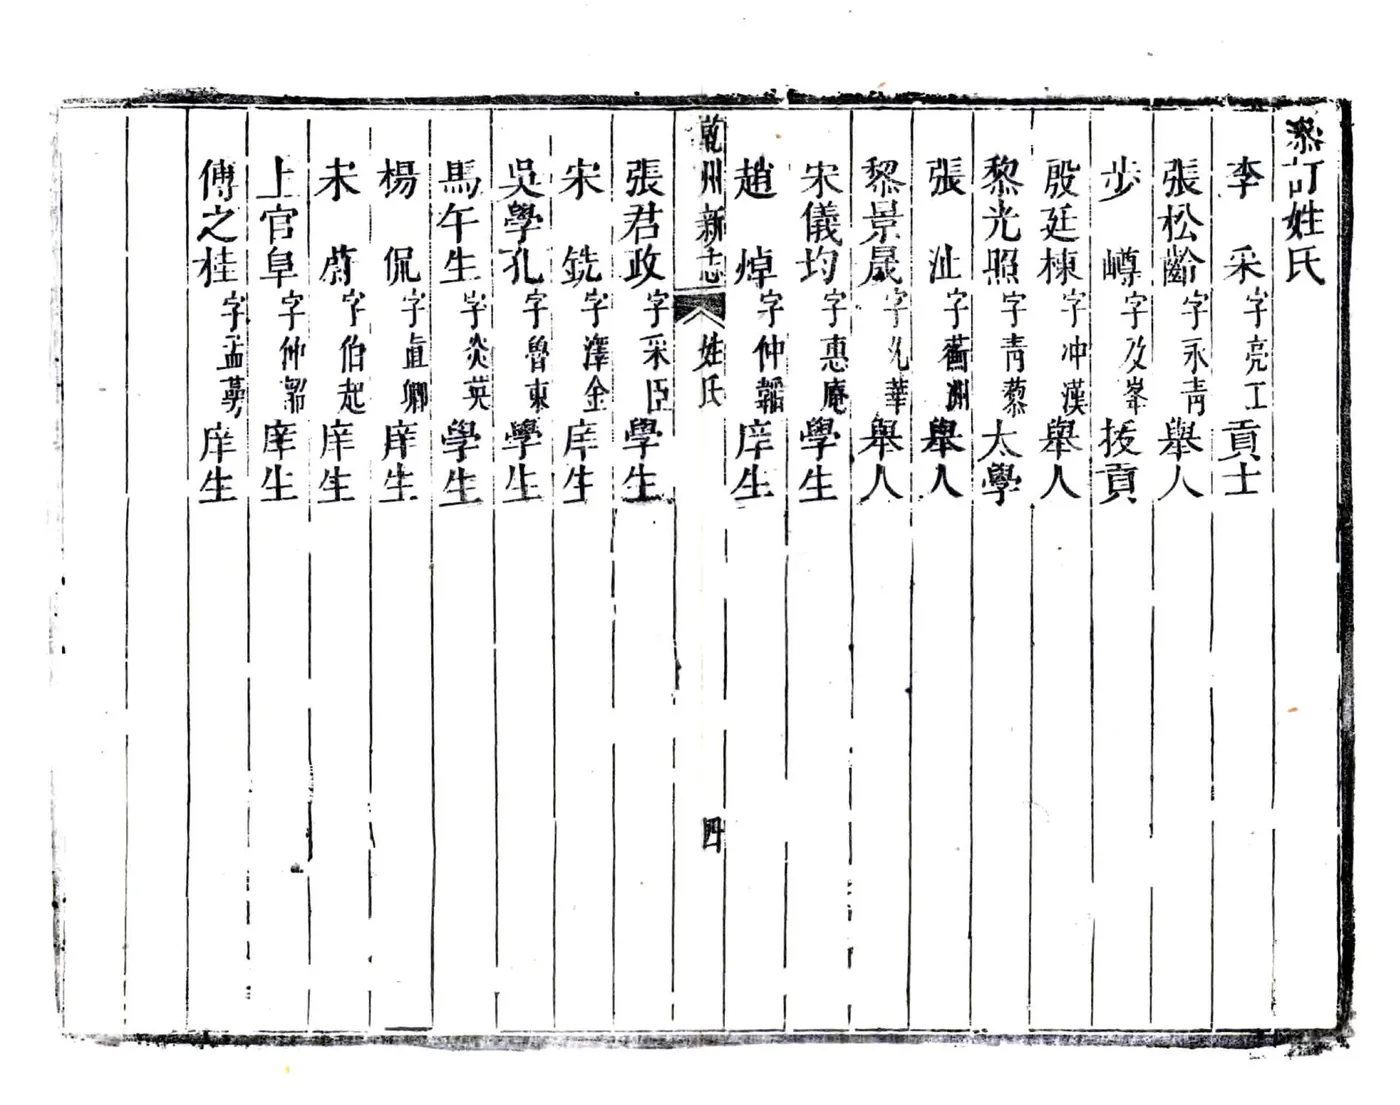 叅訂姓氏
李 采字亮工貢士
張松齡字永青舉人
步 嶟字及峯拔貢
殷廷棟字冲漢舉人
黎光照字青藜太學
張 沚字蘅洲舉人
黎景晟字九華舉人
宋儀均字惠庵學生
趙 焯字仲韜庠生
乾州新志 姓氏 四
張君政字采臣學生
宋 銑字澤金庠生
吳學孔字魯東學生
馬午生字炎英學生
楊 侃字直卿庠生
未 蔚字伯起庠生
上官阜字仲 庠生
傅之桂字孟夢庠生